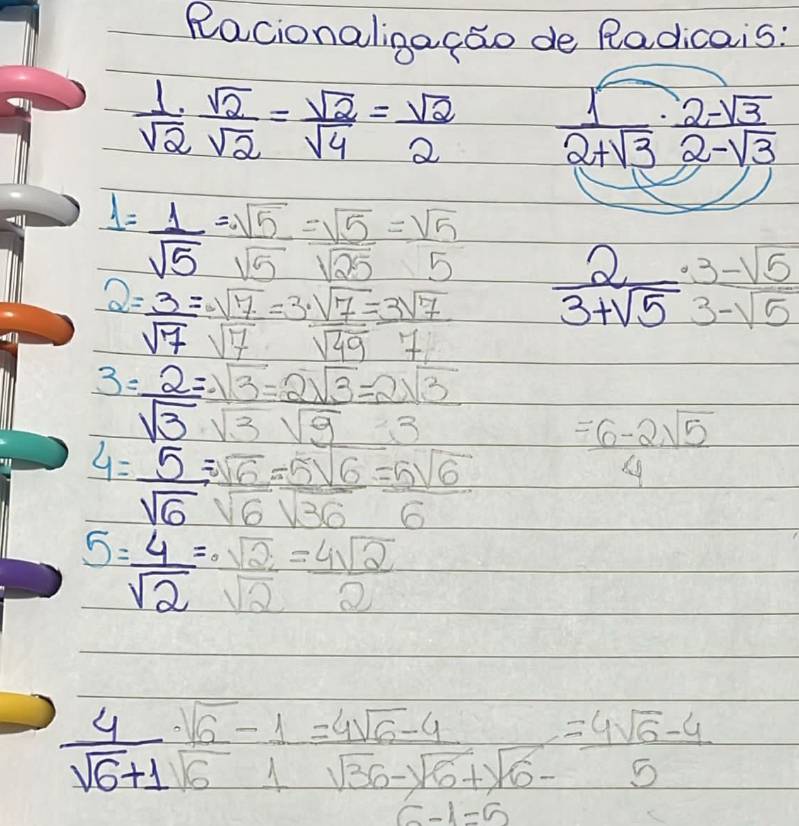 Racionalização de Radicais:
1/√2 · √2/√2 = √2/√4 = √2/2
1/(2+√3) · (2-√3)/(2-√3)
1= 1/√5 = ·√5/√5 = √5/√25 = √5/5
2= 3/√7 = ·√7/√7 = 3·√7/√49 = 3√7/7
3= 2/√3 = ·√3/√3 = 2√3/√9 = 2√3/3
4= 5/√6 = ·√6/√6 = 5√6/√36 = 5√6/6
5= 4/√2 = ·√2/√2 = 4√2/2
2/(3+√5) · (3-√5)/(3-√5)
= (6-2√5)/4
4/(√6+1) · (√6-1)/(√6 1) = (4√6-4)/(√36-√6+√6-) = (4√6-4)/5
6-1=5